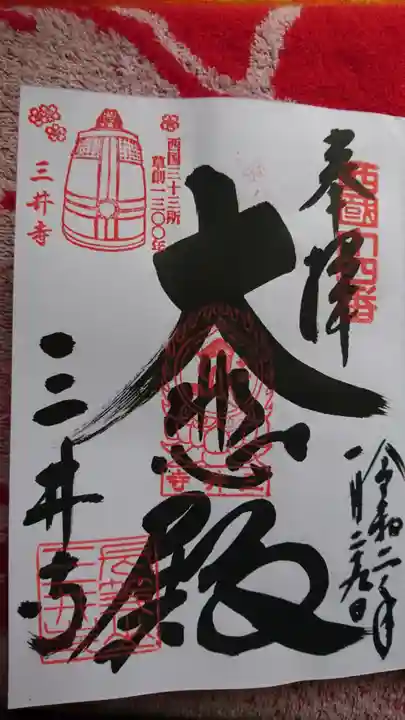 奉拝
西国十四番
令和二年
一月二六日
大悲殿
三井寺
西国三十三所
草創一三〇〇年
三井寺
三井寺